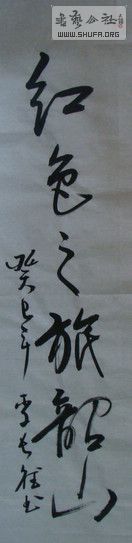 书艺公社
WWW.SHUFA.ORG
红色之旅韶山
癸巳年